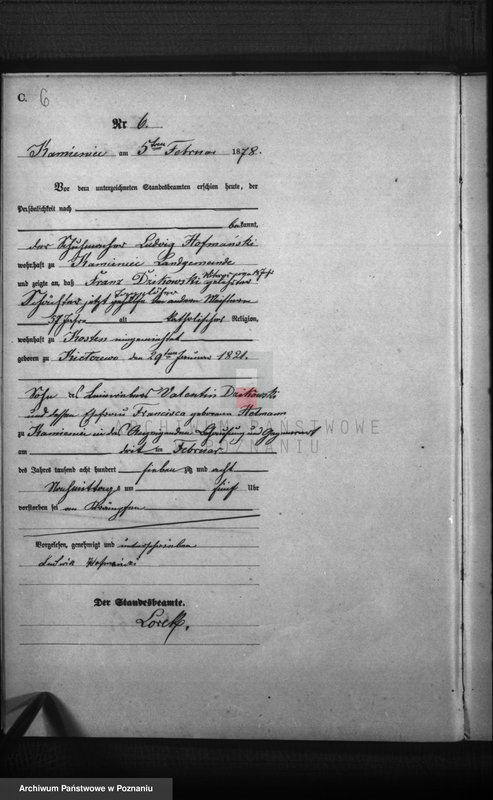 C. 6
Nr 6.
Kamieniec am 5ten Februar 1878.
Vor dem unterzeichneten Standesbeamten erschien heute, der
Persönlichkeit nach
bekannt,
der Schuhmacher Ludwig Hofmański
wohnhaft zu Kamieniec Landgemeinde
und zeigte an, daß Franz Dzikowski
jetzt bei andern
57 Jahre alt katholischer Religion,
wohnhaft zu Kosten
geboren zu den 29ten Januar 1821.
Sohn des Valentin Dzikowski
und dessen Ehefrau Francisca geborenen
zu Kamieniec in des
am Februar
des Jahres tausend acht hundert sieben zig und acht
Nachmittags um fünf Uhr
verstorben sei an Krämpfen
Vorgelesen, genehmigt und unterschrieben
Ludwik Hofmański
Der Standesbeamte.
Lorek.
ARCHIWUM PAŃSTWOWE
W POZNANIU
Archiwum Państwowe w Poznaniu